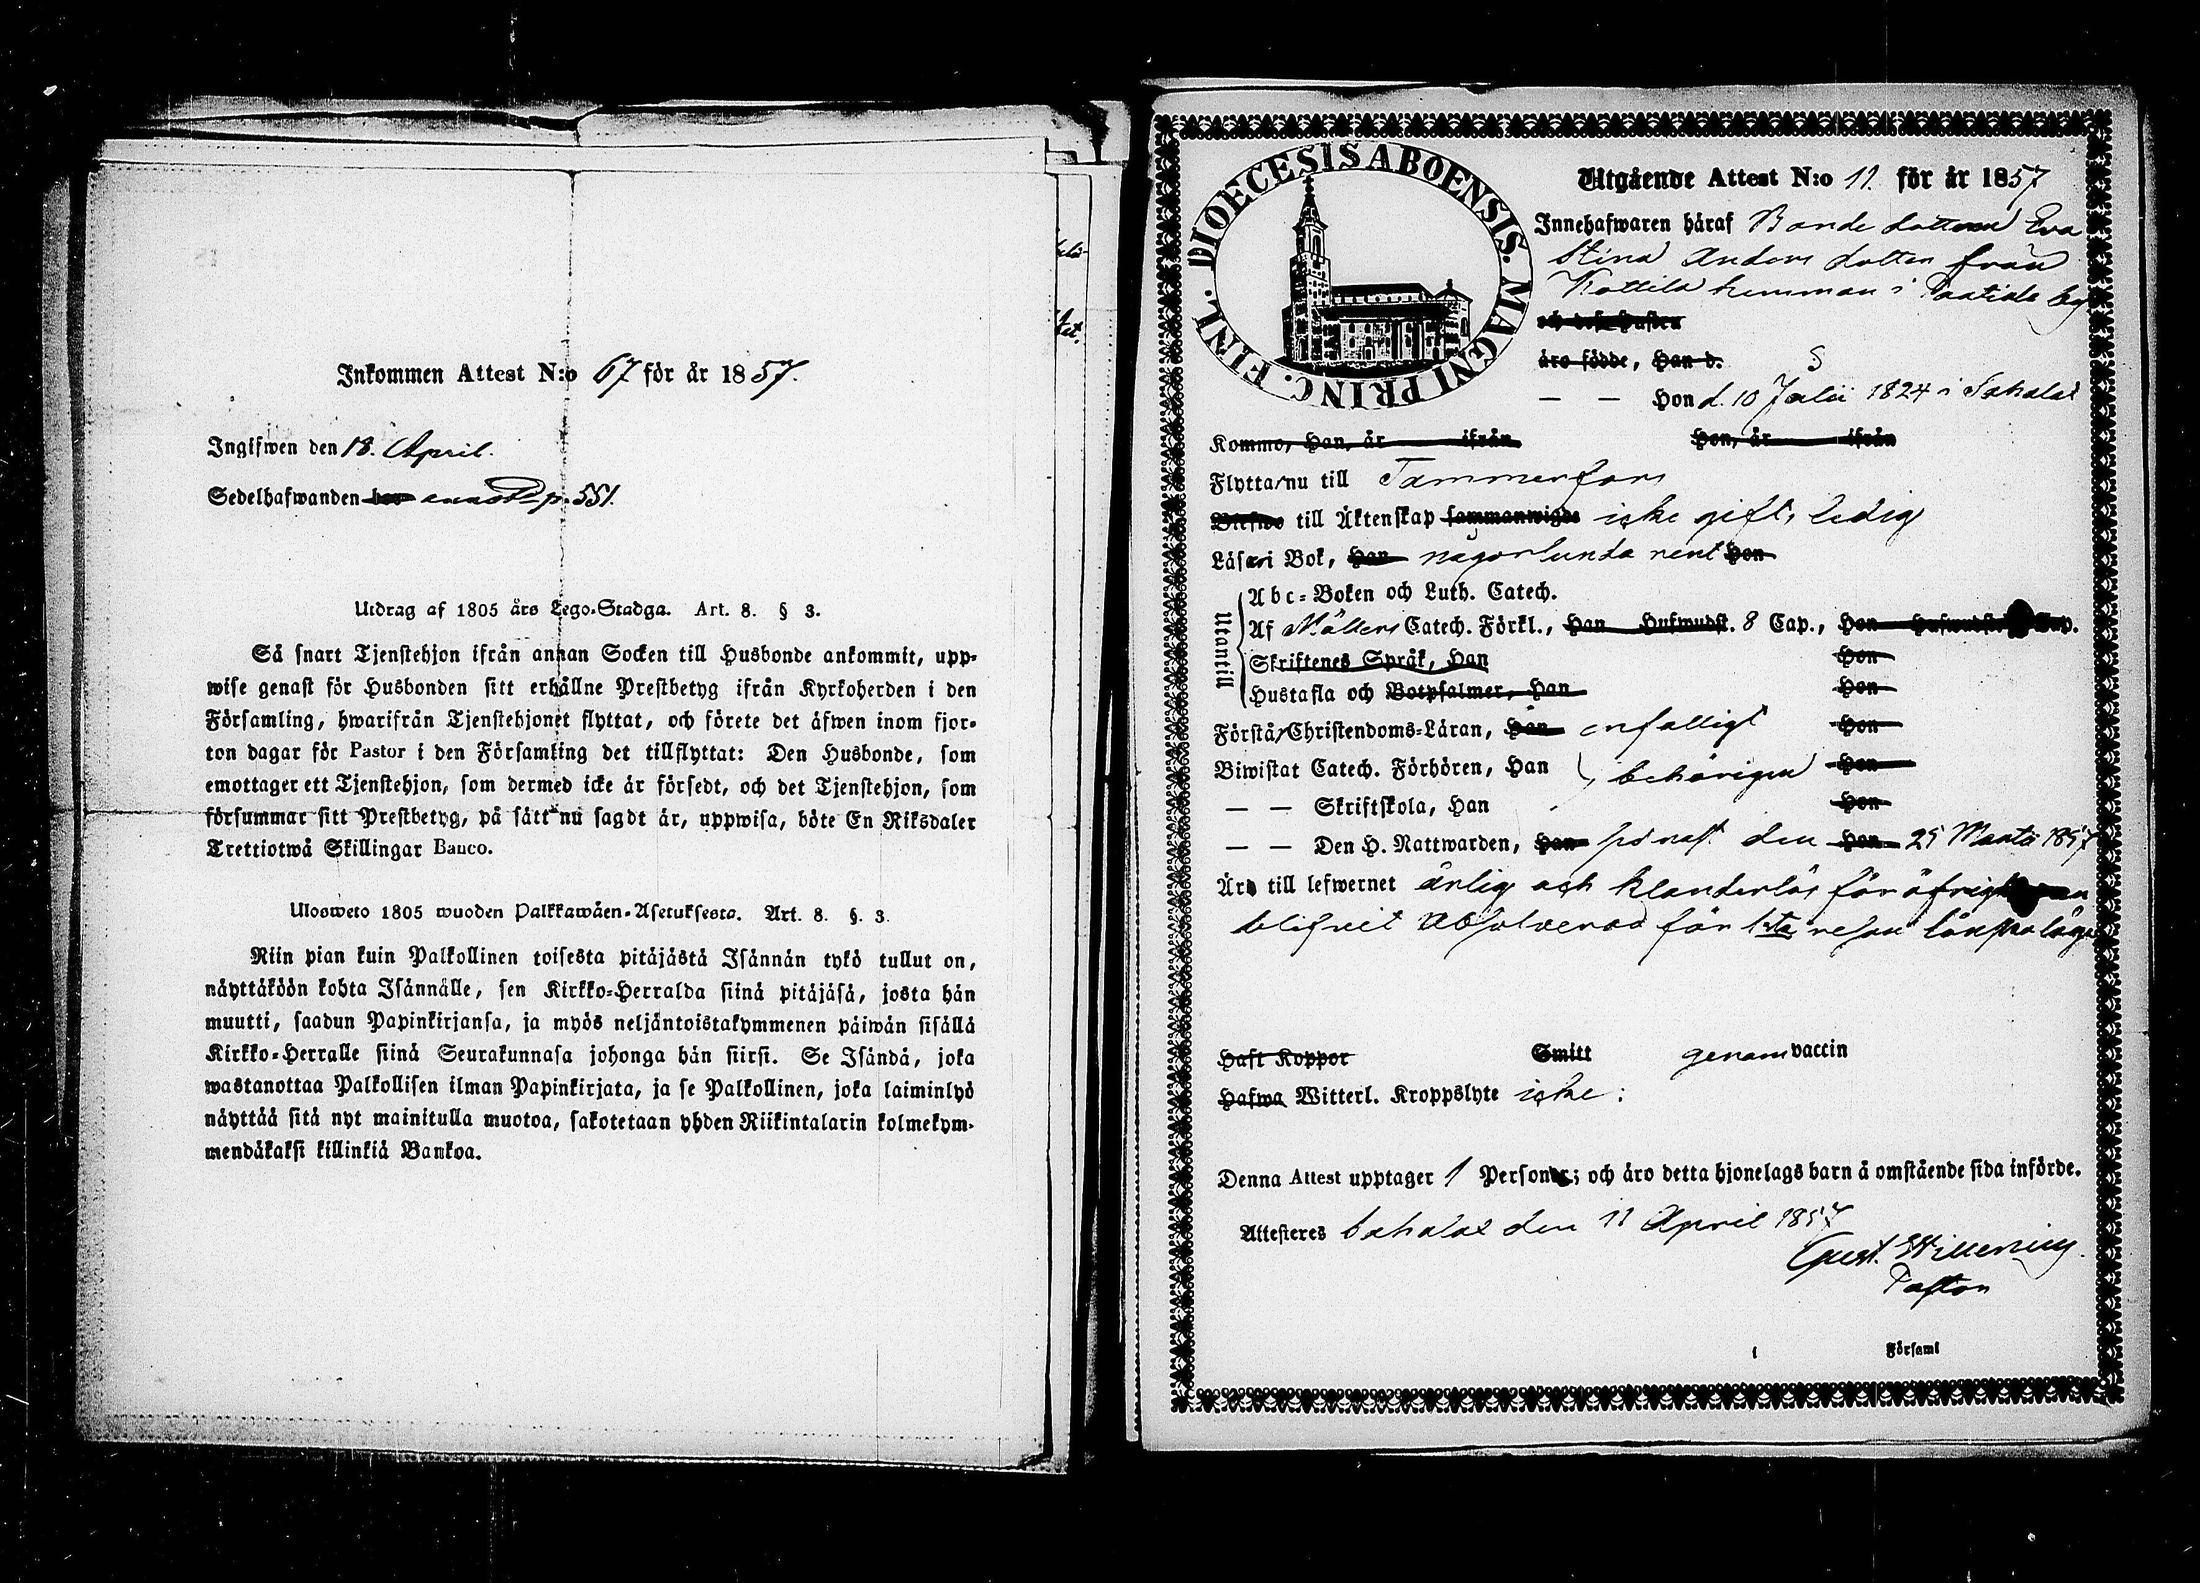 Inkommen Attest N:o 67 för år 1857.
Ingifwen den 18. April.
Sedelhafwanden har annot. p. 551.
Utdrag af 1805 års Lego-Stadga. Art. 8. § 3.
Så snart Tjenstehjon ifrån annan Socken till Husbonde ankommit, upp-
wise genast för Husbonden sitt erhållne Prestbetyg ifrån Kyrkoherden i den
Församling, hwarifrån Tjenstehjonet flyttat, och förete det äfwen inom fjor-
ton dagar för Pastor i den Församling det tillflyttat: Den Husbonde, som
emottager ett Tjenstehjon, som dermed icke är försedt, och det Tjenstehjon, som
försummar sitt Prestbetyg, på sätt nu sagdt är, uppwisa, böte En Riksdaler
Trettiotwå Skillingar Banco.
Ulosweto 1805 wuoden Palkkawäen-Asetuksesta. Art. 8. §. 3.
Niin pian kuin Palkollinen toisesta pitäjästä Isännän tykö tullut on,
näyttäköön kohta Isännälle, sen Kirkko-Herralda siinä pitäjäsä, josta hän
muutti, saadun Papinkirjansa, ja myös neljäntoistakymmenen päiwän sisällä
Kirkko-Herralle siinä Seurakunnasa johonga hän siirsi. Se Isändä, joka
wastanottaa Palkollisen ilman Papinkirjata, ja se Palkollinen, joka laiminlyö
näyttää sitä nyt mainitulla muotoa, sakotetaan yhden Riikintalarin kolmekym-
mendäkaksi killinkiä Bankoa.
DIOECESIS ABOENSIS. MAGNI PRINC. FINL.
Utgående Attest N:o 11. för år 1857
Innehafwaren häraf Bonde dottren Eva
Stina Anders dotter från
Kottila hemman i Paatiala by
och dess Hustru
äro födde, Han d.
— — Hon d. 10 Julii 1824 i Sahalax
Kommo, Han, år ifrån Hon, år ifrån
Flytta nu till Tammerfors
Blefwo till Äktenskap sammanwigde icke gift, ledig
Läsa i Bok, Han någorlunda rent Hon
Utantill
Abc-Boken och Luth. Catech.
Af Möllers Catech. Förkl., Han Hufwudst. 8 Cap., Hon Hufwudst. Cap.
Skriftenes Språk, Han Hon
Hustafla och Botpsalmer, Han Hon
Förstå Christendoms-Läran, Han enfalligt Hon
Biwistat Catech. Förhören, Han behörigen Hon
— — Skriftskola, Han Hon
— — Den H. Nattwarden, Han sednast den Hon 25 Martii 1857
Äro till lefwernet ärlig och klanderlös för öfrigt
blifvit absolverad för 1sta resan lönskaläge
Haft Koppor Smitt genom vaccin
Hafwa Witterl. Kroppslyte icke:
Denna Attest upptager 1 Person; och äro detta hjonelags barn å omstående sida införde.
Attesteres Sahalax den 11 April 1857
Gust.
Pastor
i Församl